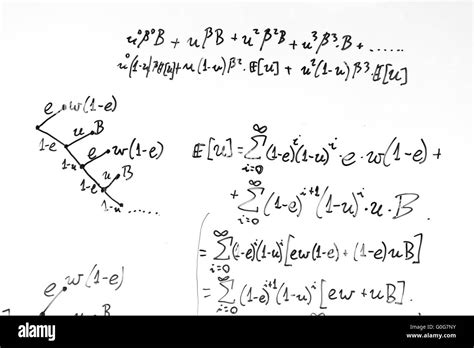 u⁰β⁰B + uβB + u²β²B + u³β³·B + ......
u⁰(1-u)β𝔼[u] + u(1-u)β²·𝔼[u] + u²(1-u)β³·𝔼[u]
e w(1-e)
1-e u B
1-u e w(1-e)
1-e u B
1-u ......
𝔼[u] = ∑_{i=0}^{∞} (1-e)^i (1-u)^i · e · w(1-e) +
+ ∑_{i=0}^{∞} (1-e)^{i+1} (1-u)^i · u · B
= ∑_{i=0}^{∞} (1-e)^i (1-u)^i [ew(1-e) + (1-e)uB]
= ∑_{i=0}^{∞} (1-e)^{i+1} (1-u)^i [ew + uB].
e w(1-e)
alamy
Image ID: G0G7NY
www.alamy.com